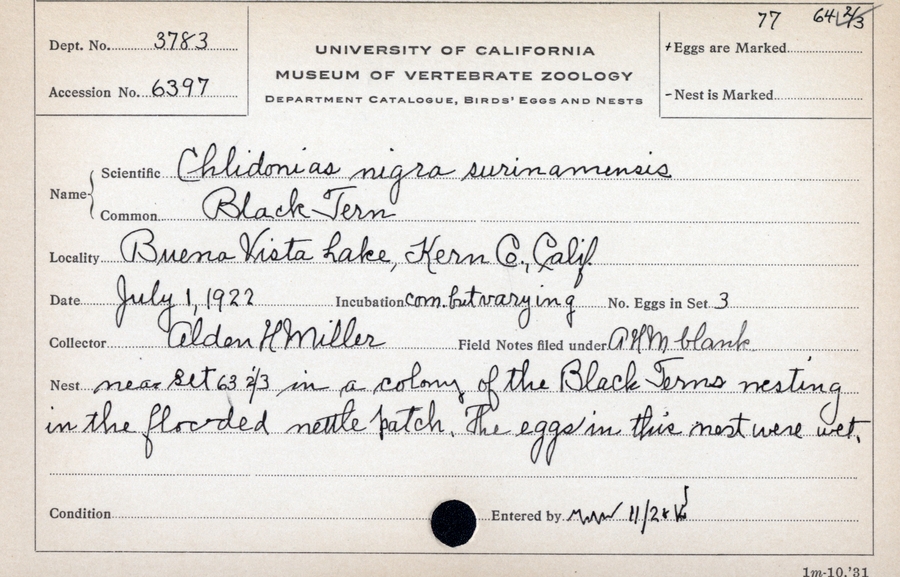 77 64 2/3
Dept. No. 3783
UNIVERSITY OF CALIFORNIA
+Eggs are Marked
MUSEUM OF VERTEBRATE ZOOLOGY
Accession No. 6397
DEPARTMENT CATALOGUE, BIRDS' EGGS AND NESTS
-Nest is Marked
Name
Scientific Chlidonias nigra surinamensis
Common Black Tern
Locality Buena Vista Lake, Kern Co., Calif.
Date July 1, 1922 Incubation com. but varying No. Eggs in Set 3
Collector Alden H Miller Field Notes filed under AHM blank
Nest near set 63 2/3 in a colony of the Black Terns nesting
in the flooded nettle patch. The eggs in this nest were wet.
Condition Entered by
1m-10,'31